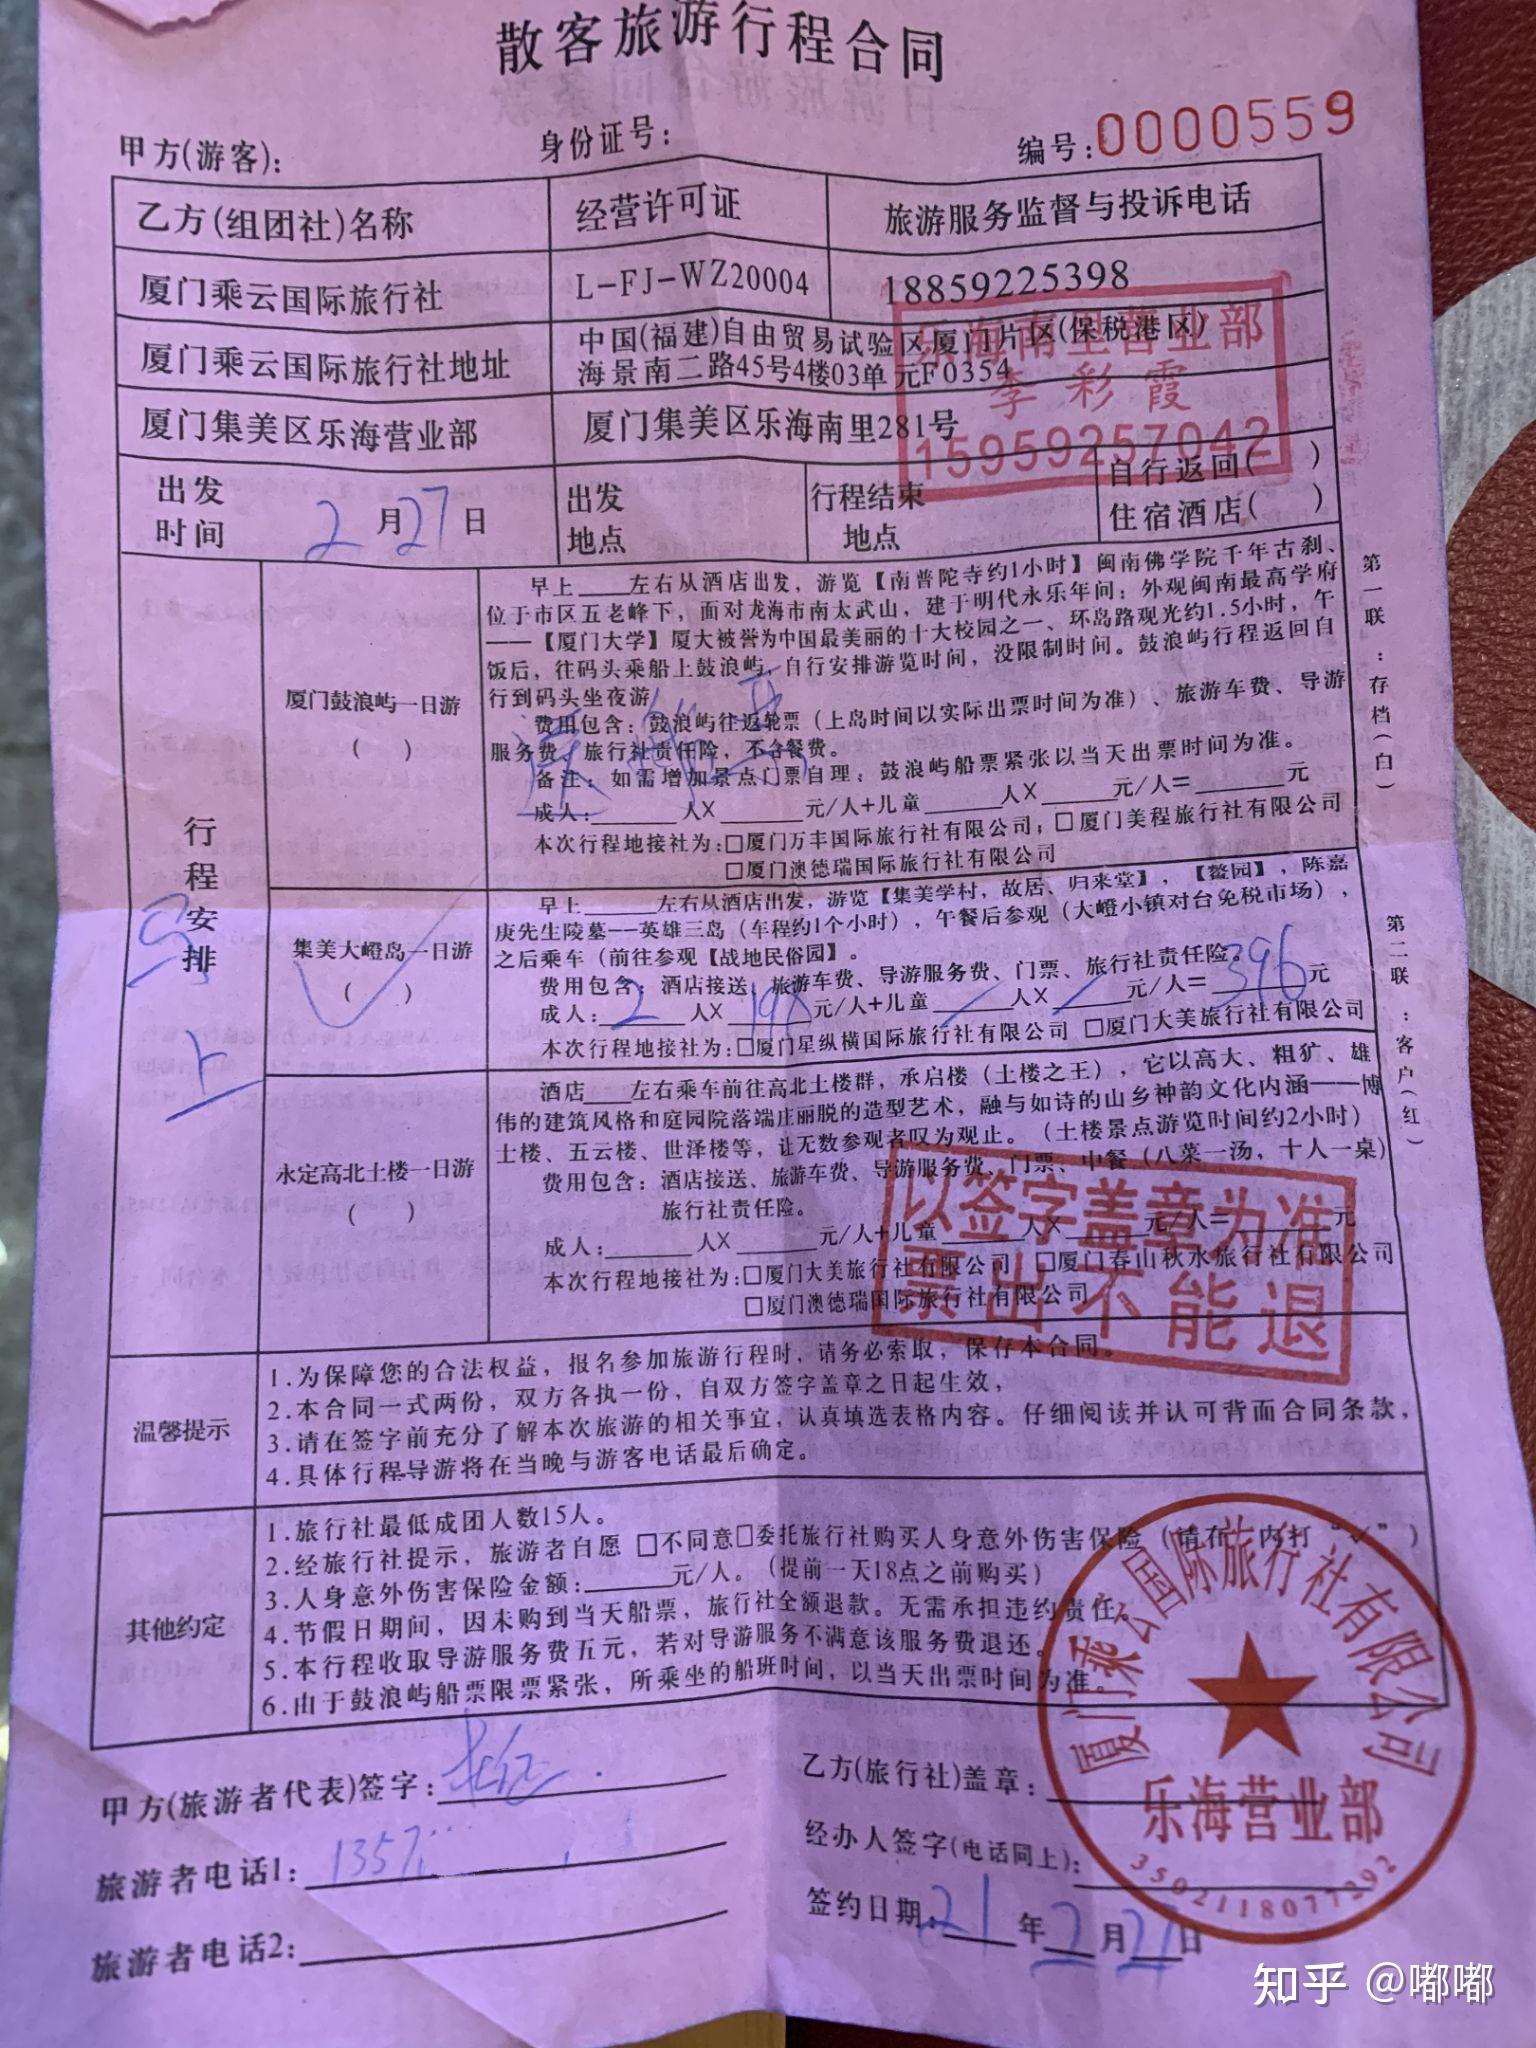 散客旅游行程合同
甲方(游客):
身份证号:
编号:0000559
乙方(组团社)名称
经营许可证
旅游服务监督与投诉电话
厦门乘云国际旅行社
L-FJ-WZ20004
18859225398
厦门乘云国际旅行社地址
中国(福建)自由贸易试验区厦门片区(保税港区)
海景南二路45号4楼03单元F0354
乐海南里营业部
李彩霞
15959257042
厦门集美区乐海营业部
厦门集美区乐海南里281号
出发
时间
2月27日
出发
地点
行程结束
地点
自行返回( )
住宿酒店( )
行程安排
厦门鼓浪屿一日游
( )
早上____左右从酒店出发，游览【南普陀寺约1小时】闽南佛学院千年古刹、
位于市区五老峰下，面对龙海市南太武山，建于明代永乐年间；外观闽南最高学府
——【厦门大学】厦大被誉为中国最美丽的十大校园之一、环岛路观光约1.5小时，午
饭后，往码头乘船上鼓浪屿，自行安排游览时间，没限制时间。鼓浪屿行程返回自
行到码头坐夜游
费用包含：鼓浪屿往返轮票（上岛时间以实际出票时间为准）、旅游车费、导游
服务费、旅行社责任险，不含餐费。
备注：如需增加景点门票自理，鼓浪屿船票紧张以当天出票时间为准。
成人:______人X______元/人+儿童______人X______元/人=______元
本次行程地接社为:□厦门万丰国际旅行社有限公司；□厦门美程旅行社有限公司
□厦门澳德瑞国际旅行社有限公司
集美大嶝岛一日游
( )
早上____左右从酒店出发，游览【集美学村，故居、归来堂】，【鳌园】，陈嘉
庚先生陵墓——英雄三岛（车程约1个小时），午餐后参观（大嶝小镇对台免税市场），
之后乘车（前往参观【战地民俗园】。
费用包含：酒店接送、旅游车费、导游服务费、门票、旅行社责任险。
成人:2人X198元/人+儿童 / 人X / 元/人=396元
本次行程地接社为:□厦门星纵横国际旅行社有限公司 □厦门大美旅行社有限公司
永定高北土楼一日游
( )
酒店____左右乘车前往高北土楼群，承启楼（土楼之王），它以高大、粗犷、雄
伟的建筑风格和庭园院落端庄丽脱的造型艺术，融与如诗的山乡神韵文化内涵——博
土楼、五云楼、世泽楼等，让无数参观者叹为观止。（土楼景点游览时间约2小时）
费用包含：酒店接送、旅游车费、导游服务费、门票、中餐（八菜一汤，十人一桌）
旅行社责任险。
成人:______人X______元/人+儿童______人X______元/人=______元
本次行程地接社为:□厦门大美旅行社有限公司 □厦门春山秋水旅行社有限公司
□厦门澳德瑞国际旅行社有限公司
以签字盖章为准
票出不能退
第一联：存档(白)
第二联：客户(红)
温馨提示
1.为保障您的合法权益，报名参加旅游行程时，请务必索取，保存本合同。
2.本合同一式两份，双方各执一份，自双方签字盖章之日起生效，
3.请在签字前充分了解本次旅游的相关事宜，认真填选表格内容。仔细阅读并认可背面合同条款，
4.具体行程导游将在当晚与游客电话最后确定。
其他约定
1.旅行社最低成团人数15人。
2.经旅行社提示，旅游者自愿 □不同意□委托旅行社购买人身意外伤害保险（请在□内打“√”）
3.人身意外伤害保险金额:______元/人。（提前一天18点之前购买）
4.节假日期间，因未购到当天船票，旅行社全额退款。无需承担违约责任。
5.本行程收取导游服务费五元，若对导游服务不满意该服务费退还。
6.由于鼓浪屿船票限票紧张，所乘坐的船班时间，以当天出票时间为准
甲方(旅游者代表)签字:
乙方(旅行社)盖章:
旅游者电话1: 1357
经办人签字(电话同上):
旅游者电话2:
签约日期:21年2月27日
厦门乘云国际旅行社有限公司
乐海营业部
3502118077292
知乎 @嘟嘟